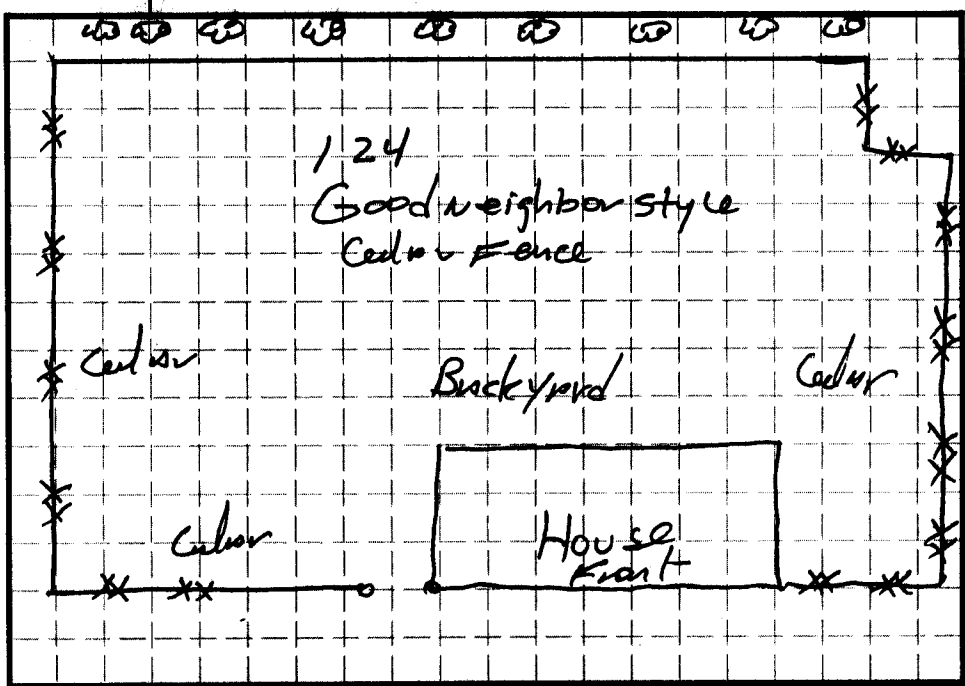 124
Good neighbor style
Cedar Fence
Cedar
Backyard
Cedar
Cedar
House
Front